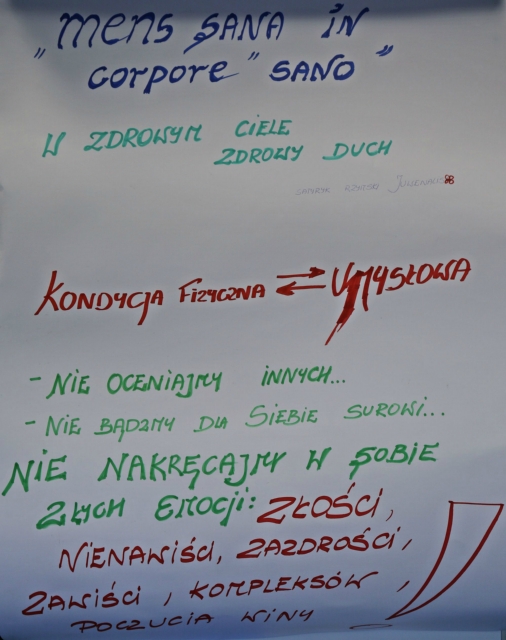 „mens sana in
corpore" sano"
W ZDROWYM CIELE
ZDROWY DUCH
satyryk rzymski Juwenalis
KONDYCJA FIZYCZNA ⇄ UMYSŁOWA
- NIE OCENIAJMY INNYCH...
- NIE BĄDŹMY DLA SIEBIE SUROWI...
NIE NAKRĘCAJMY W SOBIE
ZŁYCH EMOCJI: ZŁOŚCI,
NIENAWIŚCI, ZAZDROŚCI,
ZAWIŚCI, KOMPLEKSÓW,
POCZUCIA WINY